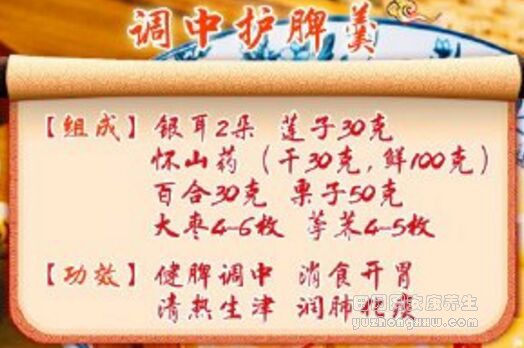 调中护脾羹
【组成】银耳2朵 莲子30克
怀山药（干30克,鲜100克）
百合30克 栗子50克
大枣4-6枚 荸荠4-5枚
【功效】健脾调中 消食开胃
清热生津 润肺化痰
yuzhongxuw.com